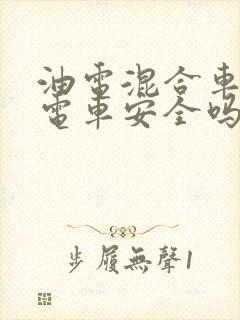 油電混合車
電車安全嗎
步履無聲1